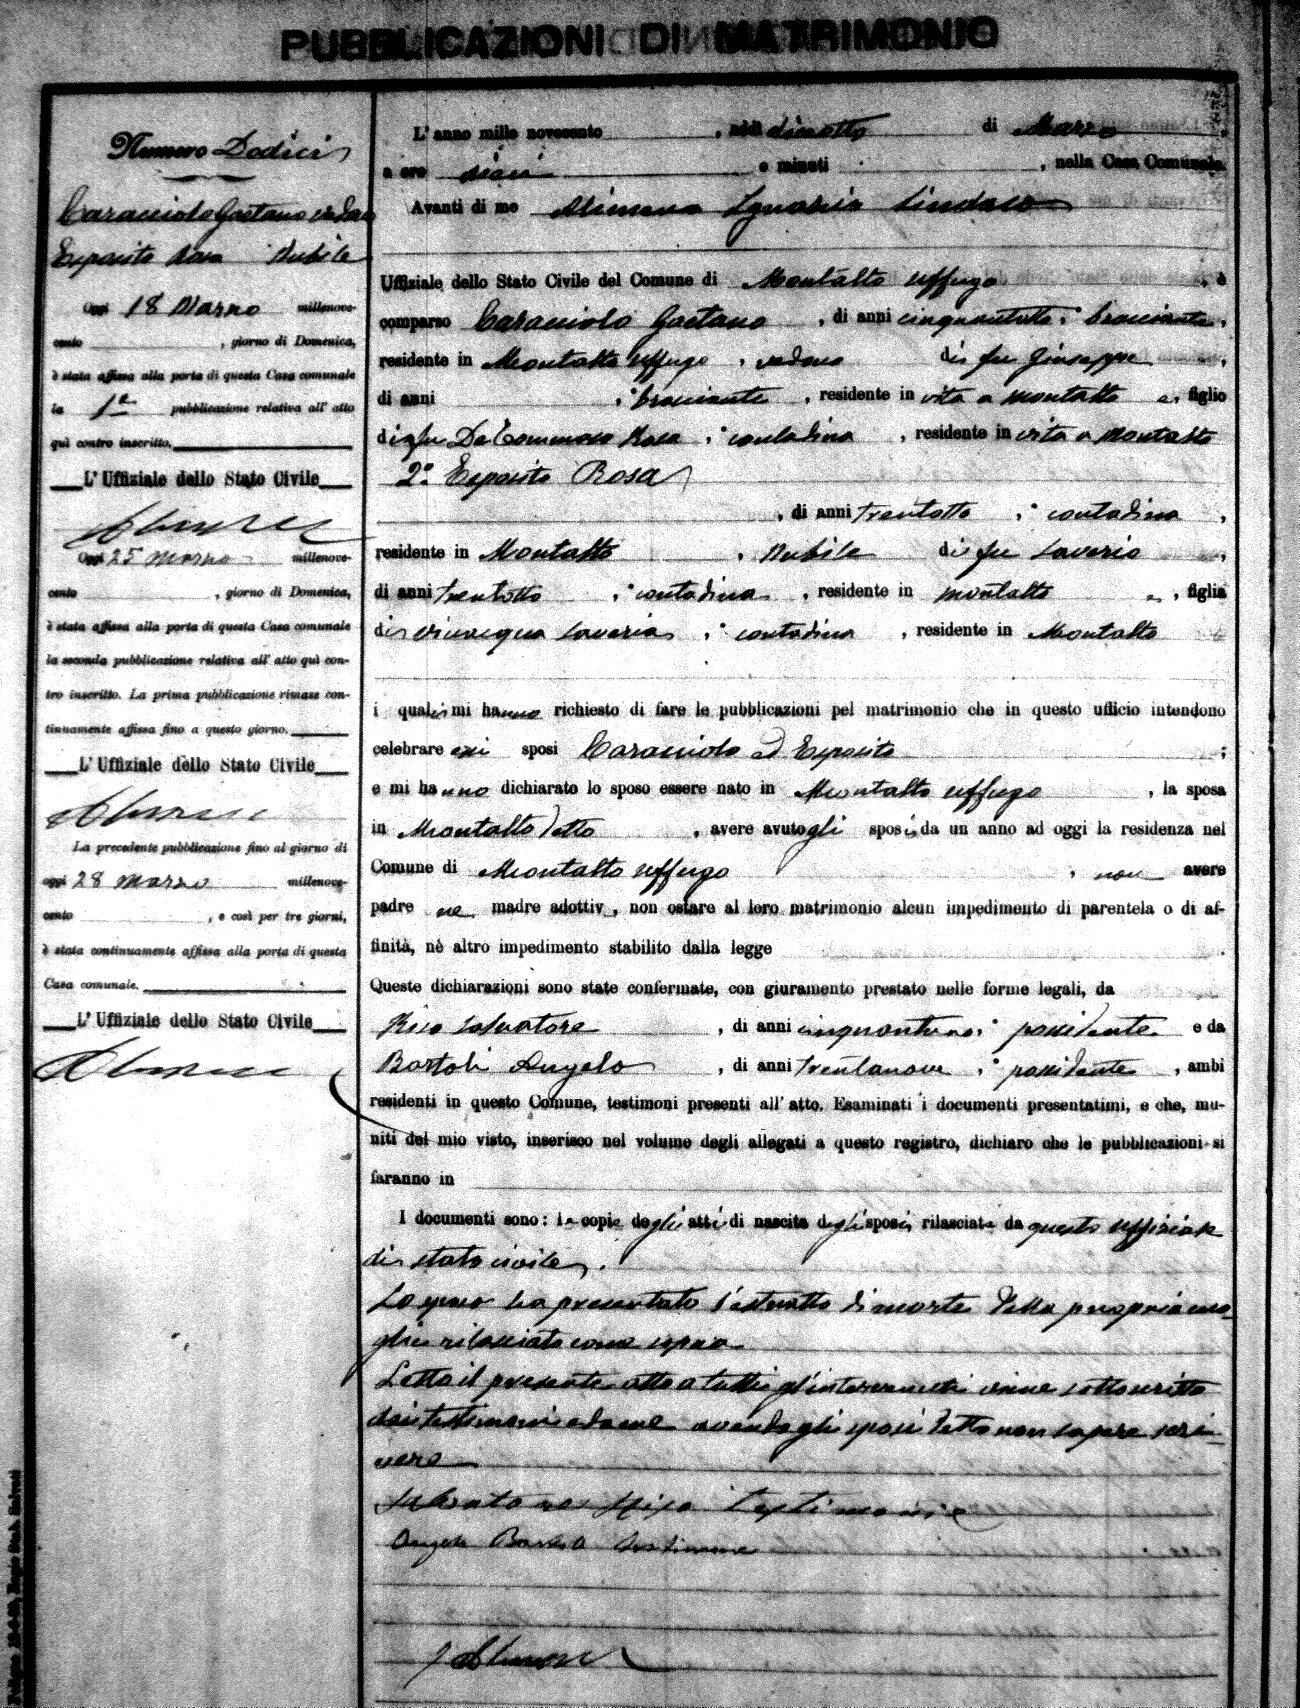 PUBBLICAZIONI DI MATRIMONIO
Numero Dodici
Caracciolo Gaetano vedovo
Esposito Rosa Nubile
Oggi 18 Marzo millenove-
cento , giorno di Domenica,
è stata affissa alla porta di questa Casa comunale
la 1ª pubblicazione relativa all' atto
quì contro inscritto.
L' Uffiziale dello Stato Civile
Oggi 25 marzo millenove-
cento , giorno di Domenica,
è stata affissa alla porta di questa Casa comunale
la seconda pubblicazione relativa all' atto quì con-
tro inscritto. La prima pubblicazione rimase con-
tinuamente affissa fino a questo giorno.
L' Uffiziale dello Stato Civile
La precedente pubblicazione fino al giorno di
oggi 28 marzo millenove-
cento , e così per tre giorni,
è stata continuamente affissa alla porta di questa
Casa comunale.
L' Uffiziale dello Stato Civile
L' anno mille novecento , addì diciotto di Marzo
a ore dieci e minuti , nella Casa Comunale
Avanti di me Alimena Ignazio Sindaco
Uffiziale dello Stato Civile del Comune di Montalto Uffugo , è
comparso Caracciolo Gaetano , di anni cinquantotto , bracciante ,
residente in Montalto Uffugo , vedovo di fu Giuseppe ,
di anni , bracciante , residente in vita a Montalto e, figlio
di fu De Tommaso Rosa , contadina , residente in vita a Montalto
2º Esposito Rosa
, di anni trentotto , contadina ,
residente in Montalto , Nubile di fu Saverio ,
di anni trentotto , contadina , residente in montalto , figlia
di Saveria , contadina , residente in Montalto
i quali mi hanno richiesto di fare le pubblicazioni pel matrimonio che in questo ufficio intendono
celebrare essi sposi Caracciolo ed Esposito ;
e mi hanno dichiarato lo sposo essere nato in Montalto Uffugo , la sposa
in Montalto detto , avere avuto gli sposi da un anno ad oggi la residenza nel
Comune di Montalto Uffugo , non avere
padre ne madre adottiv , non ostare al loro matrimonio alcun impedimento di parentela o di af-
finità, nè altro impedimento stabilito dalla legge
Queste dichiarazioni sono state confermate, con giuramento prestato nelle forme legali, da
Salvatore , di anni cinquantuno , possidente e da
Bartoli Angelo , di anni trentanove , possidente , ambi
residenti in questo Comune, testimoni presenti all' atto. Esaminati i documenti presentatimi, e che, mu-
niti del mio visto, inserisco nel volume degli allegati a questo registro, dichiaro che le pubblicazioni si
faranno in
I documenti sono: le copie degli atti di nascita degli sposi rilasciate da questo uffiziale
di stato civile.
Lo sposo ha presentato l'estratto di morte della propria mo-
glie rilasciato come sopra
Letto il presente atto a tutti gl'intervenuti viene sottoscritto
dai testimoni e da me avendo gli sposi detto non sapere scri-
vere
Salvatore testimonie
Angelo Bartoli testimone